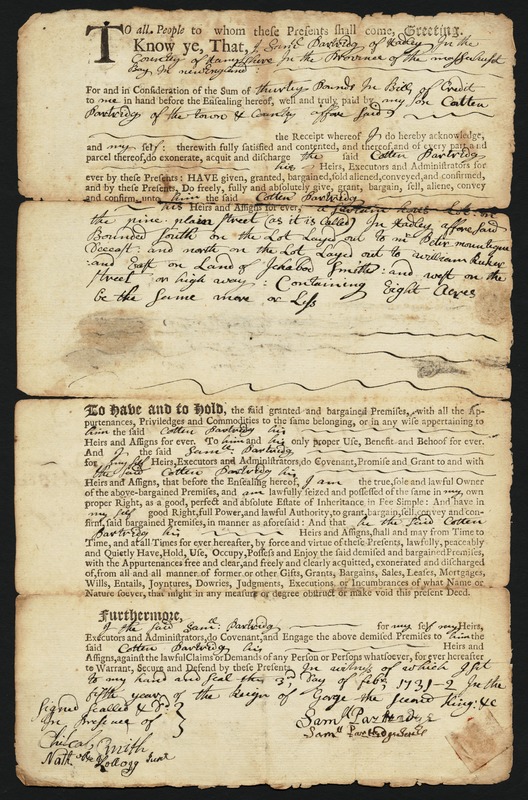 TO all People to whom these Presents shall come, Greeting.
Know ye, That, I Samll Partridg of Hadley In the
County of Hampshire In the Province of the Massachusets
Bay In newEngland:
For and in Consideration of the Sum of thurty Pounds In Bills of Credit
to me in hand before the Ensealing hereof, well and truly paid by my Son Cotten
Partridg of the town & County affore Said
the Receipt whereof I do hereby acknowledge,
and my self: therewith fully satisfied and contented, and thereof, and of every part and
parcel thereof, do exonerate, acquit and discharge the said Cotten Partridg
his Heirs, Executors and Administrators for
ever by these Presents: HAVE given, granted, bargained, sold, aliened, conveyed, and confirmed,
and by these Presents, Do freely, fully and absolutely give, grant, bargain, sell, aliene, convey
and confirm unto him the said Cotten Partridg
his Heirs and Assigns for ever, a Sertain home Lott on
the pine plain Street (as it is Called) In Hadley affore Said
Bounded South on the Lot Layed out to mr Petir mountague
Deceast: and north on the Lot Layed out to William
and East on Land of Ichabod Smiths: and west on the
Street or high way: Containing Eight Acres
be the Same more or Less
To Have and to Hold, the said granted and bargained Premises, with all the Ap-
purtenances, Priviledges and Commodities to the same belonging, or in any wise appertaining to
him the said Cotten Partridg his
Heirs and Assigns for ever. To him and his only proper Use, Benefit and Behoof for ever.
And I the said Samll Partridg
for my self Heirs, Executors and Administrators, do Covenant, Promise and Grant to and with
the said Cotten Partridg his
Heirs and Assigns, that before the Ensealing hereof, I am the true, sole and lawful Owner
of the above-bargained Premises, and am lawfully seized and possessed of the same in my own
proper Right, as a good, perfect and absolute Estate of Inheritance in Fee Simple: And have in
my self good Right, full Power, and lawful Authority, to grant, bargain, sell, convey and con-
firm, said bargained Premises, in manner as aforesaid: And that he the said Cotten
Partridg his Heirs and Assigns, shall and may from Time to
Time, and at all Times for ever hereafter, by force and virtue of these Presents, lawfully, peaceably
and Quietly Have, Hold, Use, Occupy, Possess and Enjoy the said demised and bargained Premises,
with the Appurtenances free and clear, and freely and clearly acquitted, exonerated and discharged
of, from all and all manner of former or other Gifts, Grants, Bargains, Sales, Leases, Mortgages,
Wills, Entails, Joyntures, Dowries, Judgments, Executions or Incumbrances of what Name or
Nature soever, that might in any measure or degree obstruct or make void this present Deed.
Furthermore,
I the said Samll Partridg for my self my Heirs,
Executors and Administrators, do Covenant, and Engage the above demised Premises to him the
said Cotten Partridg his Heirs and
Assigns, against the lawful Claims or Demands of any Person or Persons whatsoever, for ever hereafter
to Warrant, Secure and Defend by these Presents. In witnes of which I set
to my hand and Seal this 3d Day of febr, 1731-2 In the
fifth year of the Reign of Gorge the second King: &c
Signed Sealled & Dd
In Presence of
Samll Partridg
Samll Partridg
Chileab Smith
Nathl Kellogg Junr